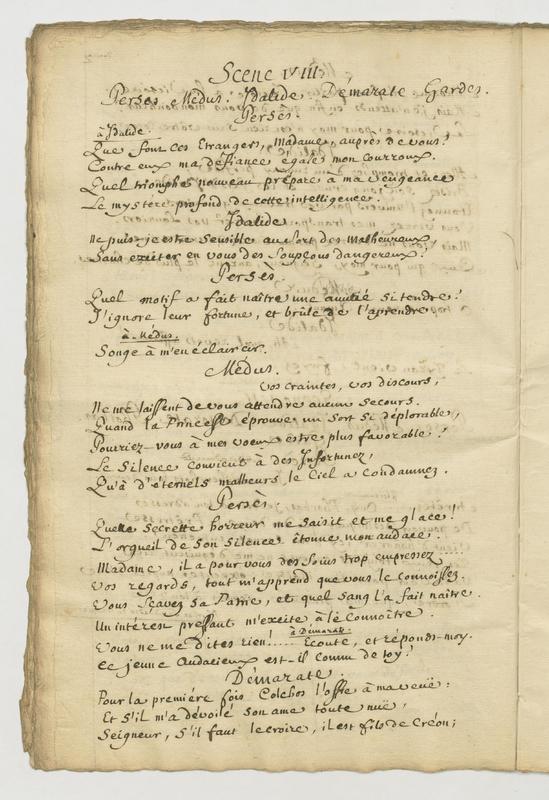 Scene VIII
Persès Médus. Idalide Démarate Gardes.
Persès.
à Idalide.
Que font ces Etrangers, Madame, auprès de vous?
Contre eux ma défiance égale mon courroux.
Quel triomphe nouveau prépare à ma vengeance
Le mystère profond de cette intelligence.
Idalide
ne puis-je estre sensible au sort des malheureux,
sans exciter en vous des soupçons dangereux?
Persès
Quel motif a fait naître une amitié si tendre?
J'ignore leur fortune, et brûle de l'aprendre
à Médus.
Songe à m'en éclaircir.
Médus.
vos craintes, vos discours,
Ne me laissent de vous attendre aucun secours.
Quand la Princesse éprouve un sort si déplorable,
Pourriez-vous à mes voeux estre plus favorable?
Le silence convient à des Infortunez,
Qu'à d'éternels malheurs le Ciel a Condamnez.
Persès.
Quelle secrette horreur me saisit et me glace!
L'orgueil de son silence étonne mon audace.
Madame, il a pour vous des soins trop empressez
vos regards, tout m'apprend que vous le connoissez.
Vous sçavez sa Patrie, et quel sang l'a fait naître.
Un intérest pressant m'excite à le Connoître.
à Démarate.
Vous ne me dites rien!..... Ecoute, et réponds-moy.
Ce jeune Audacieux est-il connu de toy?
Démarate.
Pour la premiére fois Colchos l'offre à ma veüe:
Et s'il m'a dévoilé son ame toute nuë,
Seigneur, s'il faut le croire, il est fils de Créon;